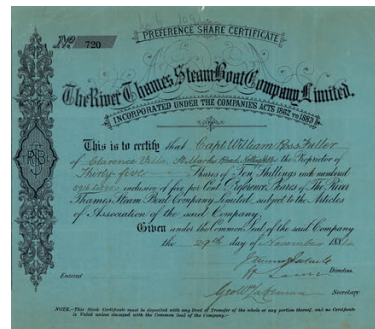 PREFERENCE SHARE CERTIFICATE
No. 720
The River Thames Steam Boat Company Limited.
INCORPORATED UNDER THE COMPANIES ACTS 1862 TO 1883
This is to certify that Capt. William Ross Fuller
of Clarence Villa, St. Mark's Road, Notting Hill is the Proprietor of
Thirty five Shares of Ten Shillings each numbered
inclusive of five per Cent Preference Shares of The River
Thames Steam Boat Company Limited, subject to the Articles
of Association of the said Company.
Given under the Common Seal of the said Company
the 29th day of November 188
Directors.
Entered
Secretary
NOTE.—This Stock Certificate must be deposited with any Deed of Transfer of the whole or any portion thereof, and no Certificate
is Valid unless stamped with the Common Seal of the Company.